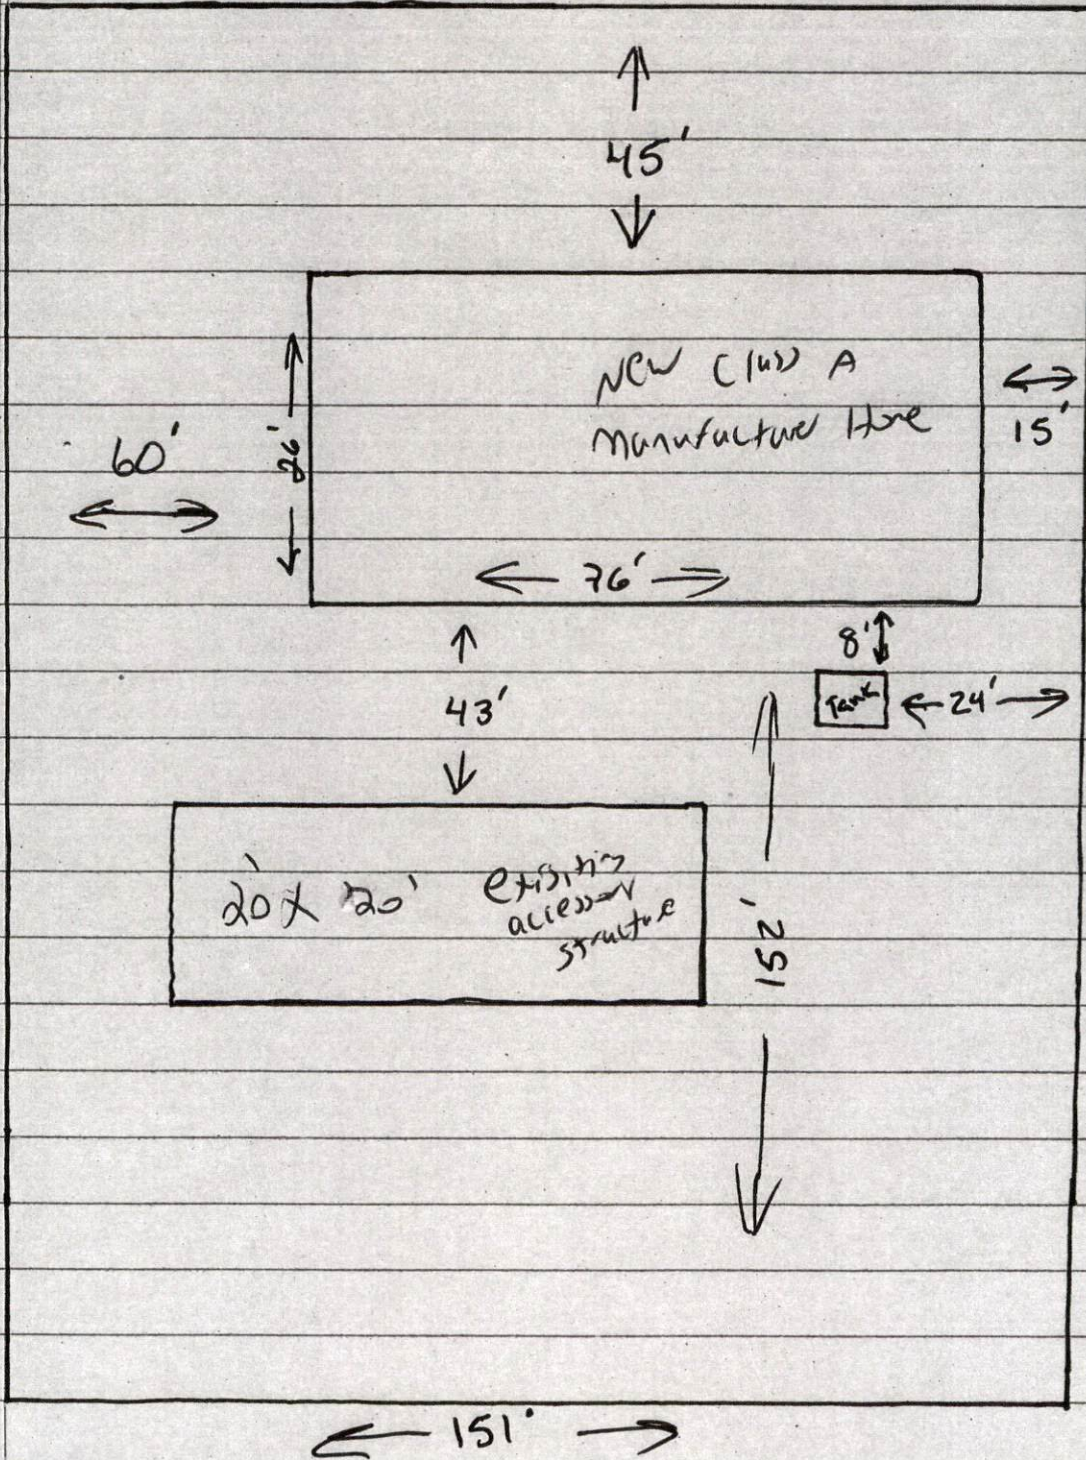 45'
New Class A
Manufacture Home
15'
60'
26'
76'
8'
43'
Tank
24'
20' x 20'
existing
accessory
structure
152'
151'